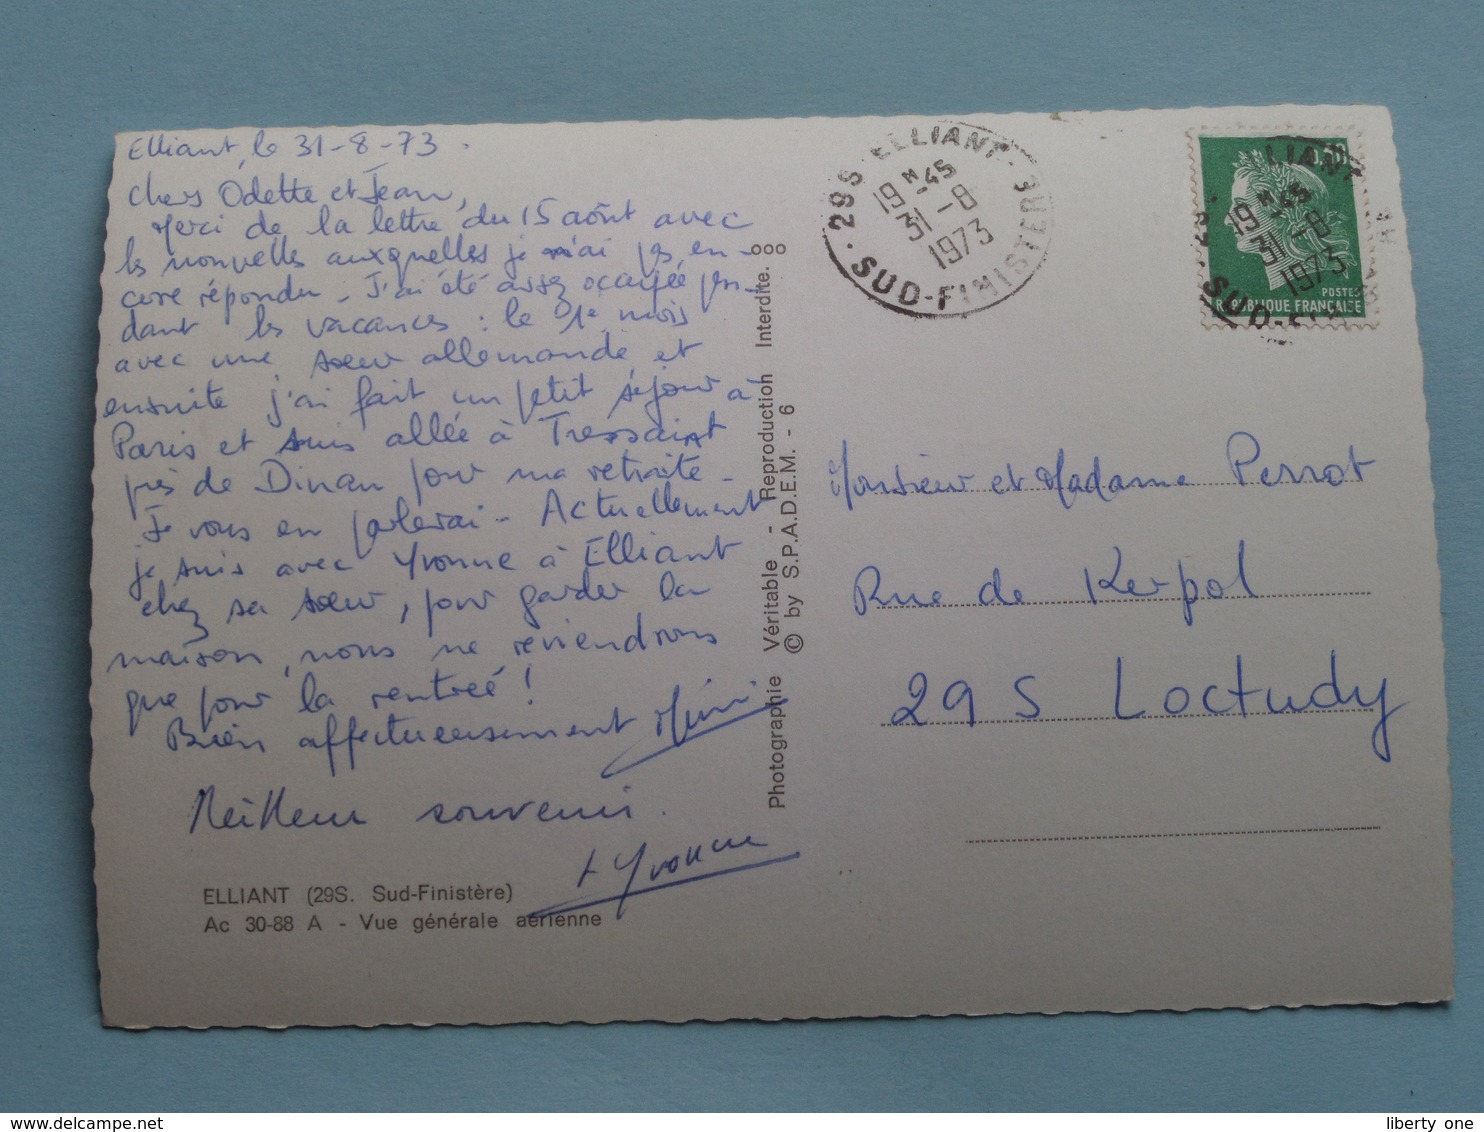 Elliant, le 31-8-73.
Chers Odette et Jean,
Merci de la lettre du 15 août avec
les nouvelles auxquelles je n'ai pas en-
core répondu - J'ai été assez occupée pen-
dant les vacances : le 1e mois
avec une sœur allemande et
ensuite j'ai fait un petit séjour à
Paris et suis allée à Tressaint
près de Dinan pour ma retraite -
Je vous en parlerai - Actuellement
je suis avec Yvonne à Elliant
chez sa sœur, pour garder la
maison, nous ne reviendrons
que pour la rentrée !
Bien affectueusement Mimi
Meilleur souvenir.
+ Yvonne
ELLIANT (29S. Sud-Finistère)
Ac 30-88 A - Vue générale aérienne
Photographie Véritable - Reproduction Interdite.
© by S.P.A.D.E.M. - 6
29S - ELLIANT
19 H 45
31 -8
1973
SUD-FINISTERE
0,30
POSTES
REPUBLIQUE FRANCAISE
29S
LIANT
19 H 45
31 -8
1973
SUD-FI
Monsieur et Madame Perrot
Rue de Kerpol
29 S Loctudy
www.delcampe.net
liberty one